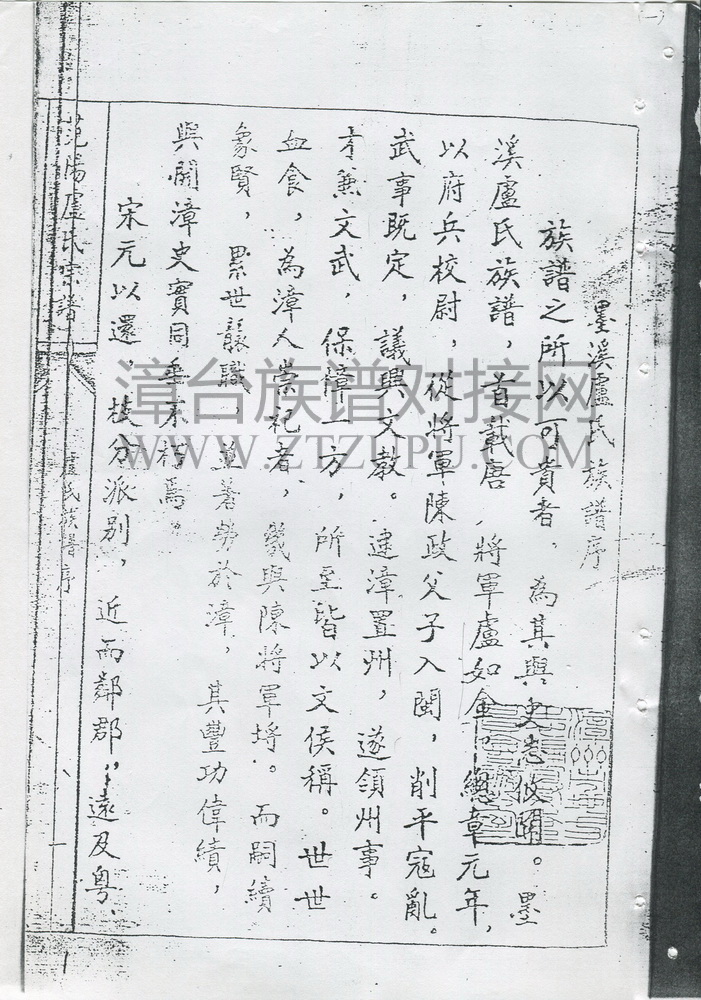 (一)
墨溪盧氏族譜序
族譜之所以可貴者，為其與史志攸關。墨
溪盧氏族譜，首載唐將軍盧如金。總章元年，
以府兵校尉，從將軍陳政父子入閩，削平寇亂。
武事既定，議興文教。建漳置州，遂領州事。
才兼文武，保障一方，所至皆以文侯稱。世世
血食，為漳人崇祀者，幾與陳將軍埒。而嗣續
象賢，累世襲職，並著勞於漳，其豐功偉績，
與開漳史實同垂不朽焉。
宋元以還，枝分派別，近而鄰郡，遠及粵、
范陽盧氏宗譜
盧氏族譜序
漳台族谱对接网
WWW.ZTZUPU.COM